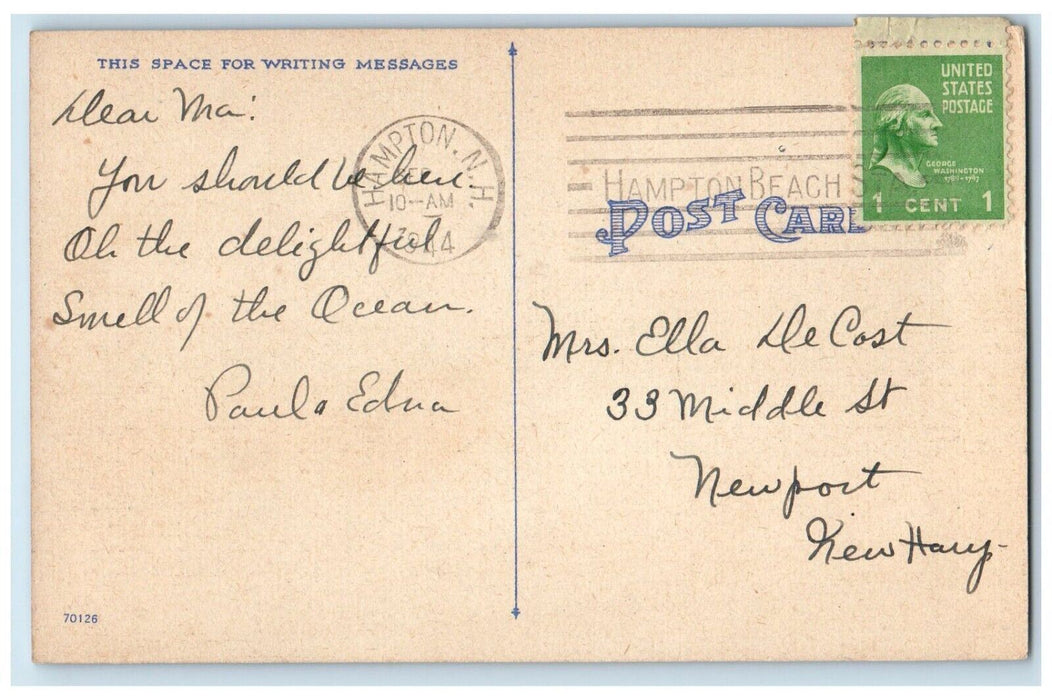 THIS SPACE FOR WRITING MESSAGES
Dear Ma:
You should be here.
Oh the delightful
Smell of the Ocean.
Paul & Edna
70126
HAMPTON, N.H.
10-AM
1944
HAMPTON BEACH
POST CARD
UNITED
STATES
POSTAGE
GEORGE
WASHINGTON
1789-1797
1 CENT 1
Mrs. Ella De Cost
33 Middle St
Newport
New Hamp-